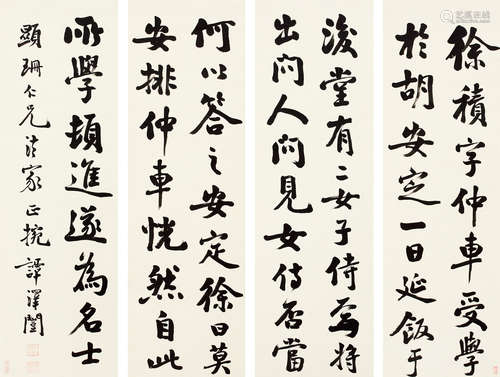 徐積字仲車受學
於胡安定一日延飯于
後堂有二女子侍焉將
出問人問見女侍否當
何以答之安定徐曰莫
安排仲車恍然自此
所學頓進遂為名士
顯珊仁兄法家正捥 譚澤闓